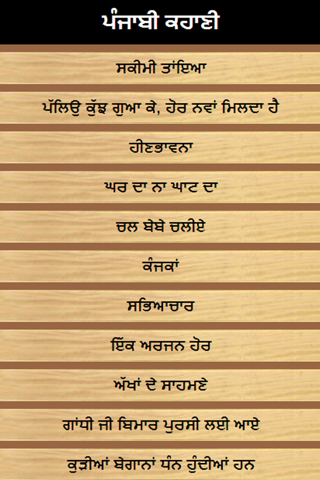 ਪੰਜਾਬੀ ਕਹਾਣੀ
ਸਕੀਮੀ ਤਾਂਇਆ
ਪੱਲਿਉ ਕੁੱਝ ਗੁਆ ਕੇ, ਹੋਰ ਨਵਾਂ ਮਿਲਦਾ ਹੈ
ਹੀਣਭਾਵਨਾ
ਘਰ ਦਾ ਨਾ ਘਾਟ ਦਾ
ਚਲ ਬੇਬੇ ਚਲੀਏ
ਕੰਜਕਾਂ
ਸਭਿਆਚਾਰ
ਇੱਕ ਅਰਜਨ ਹੋਰ
ਅੱਖਾਂ ਦੇ ਸਾਹਮਣੇ
ਗਾਂਧੀ ਜੀ ਬਿਮਾਰ ਪੁਰਸੀ ਲਈ ਆਏ
ਕੁੜੀਆਂ ਬੇਗਾਨਾਂ ਧੰਨ ਹੁੰਦੀਆਂ ਹਨ